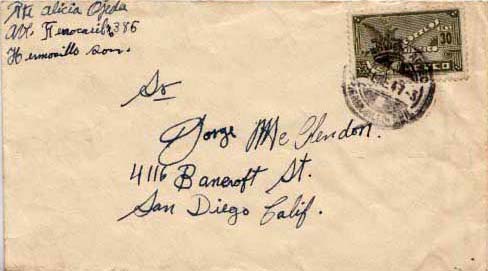 Rte Alicia Ojeda
Av. Ferrocarril 386
Hermosillo Son.
30
MEXICO
Sr
Jorge Mc Clendon.
4116 Bancroft St.
San Diego Calif.